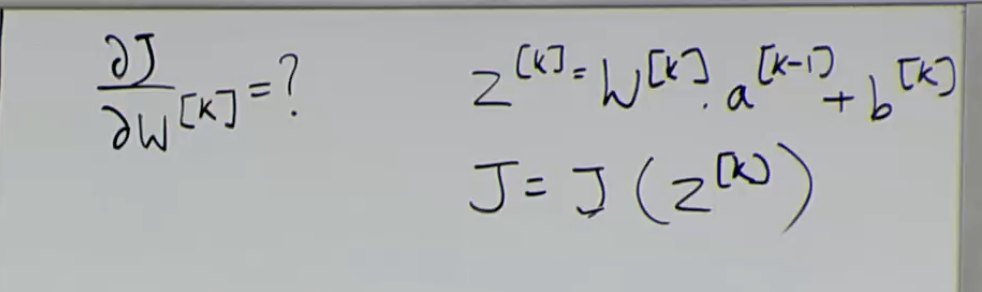 ∂J/∂W^[k] = ?
z^[k] = W^[k] · a^[k-1] + b^[k]
J = J(z^[k])